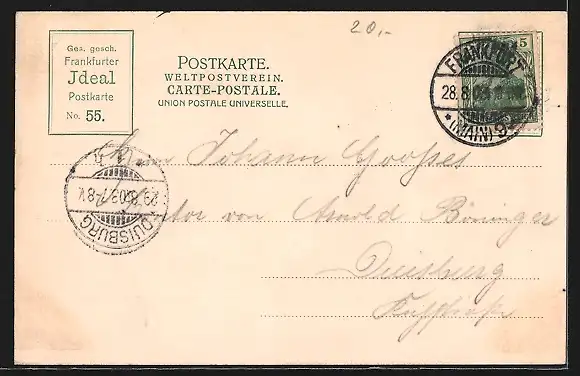 20,-
Ges. gesch.
Frankfurter
Jdeal
Postkarte
No. 55.
POSTKARTE.
WELTPOSTVEREIN.
CARTE-POSTALE.
UNION POSTALE UNIVERSELLE.
5
FRANKFURT
28.8.03
(MAIN) 9
Herrn Johann
von Arnold Böninger
Duisburg
DUISBURG
29.8.03.7-8V.